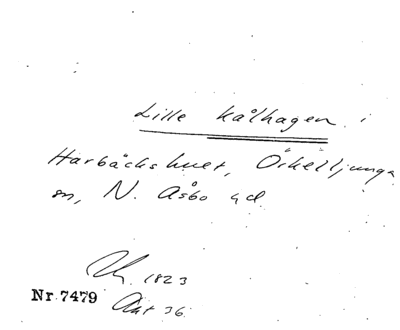 Lille Kålhagen i
Harbäckshult, Örkelljunga
sn, N. Åsbo hd
1823
Nr 7479 Akt 36